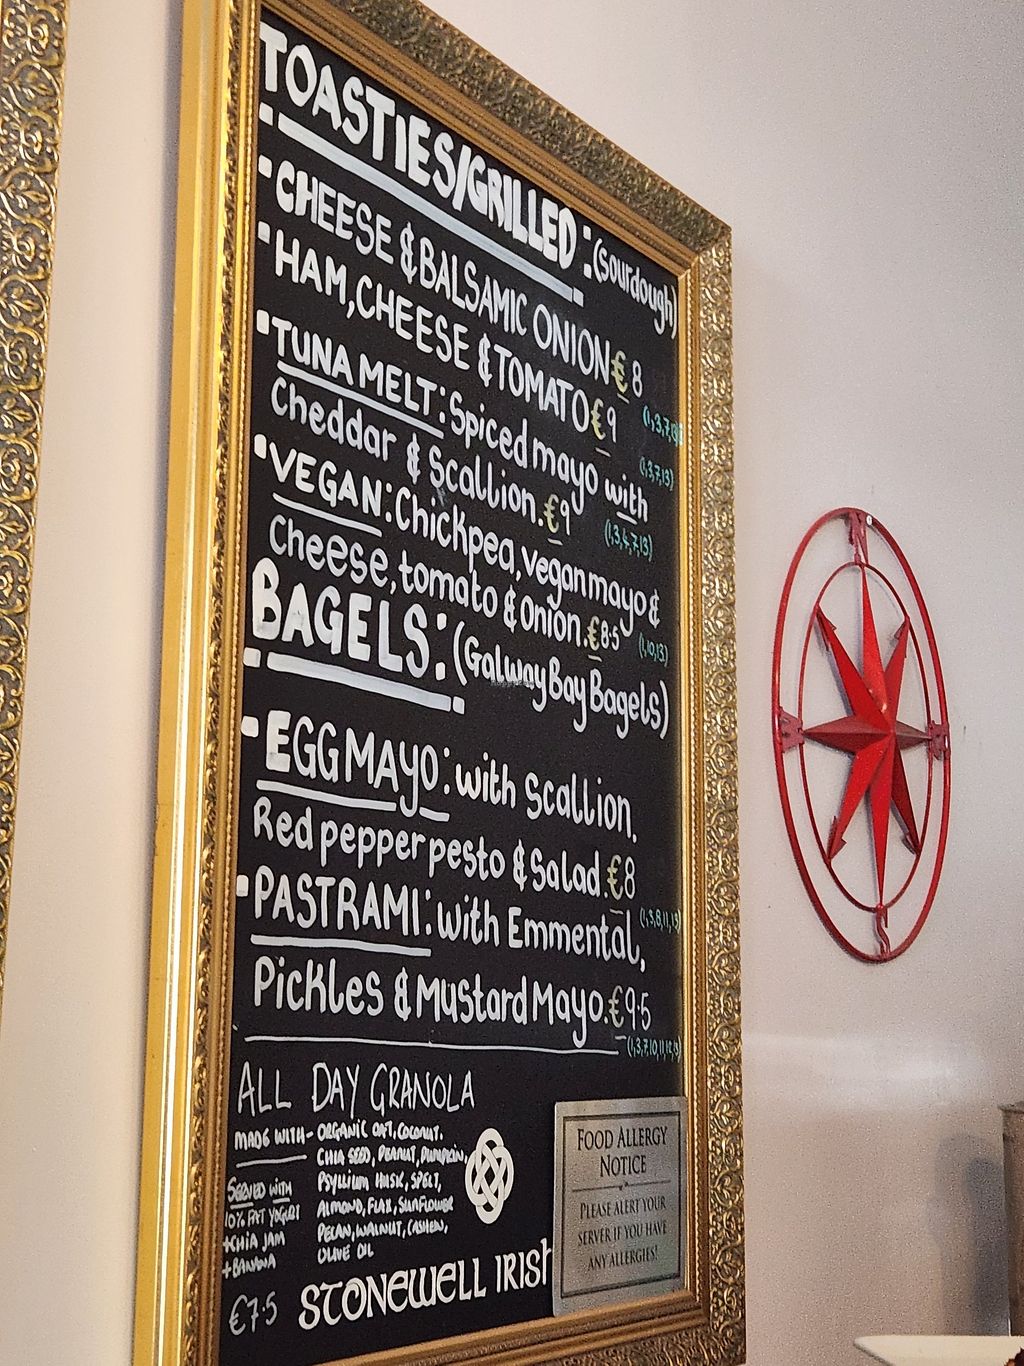 TOASTIES/GRILLED: (sourdough)
CHEESE & BALSAMIC ONION €8
HAM, CHEESE & TOMATO €9
(1,3,7,13)
TUNA MELT: Spiced mayo with
Cheddar & Scallion. €9
(1,3,4,7,13)
VEGAN: Chickpea, vegan mayo &
Cheese, tomato & Onion. €8.5
(1,10,13)
BAGELS: (Galway Bay Bagels)
EGG MAYO: with Scallion,
Red pepper pesto & Salad. €8
PASTRAMI: with Emmental,
Pickles & Mustard Mayo. €9.5
ALL DAY GRANOLA
MADE WITH - ORGANIC OAT, COCONUT,
CHIA SEED, PEANUT, PUMPKIN,
PSYLLIUM HUSK, SPELT,
ALMOND, FLAX, SUNFLOWER
PECAN, WALNUT, CASHEW,
OLIVE OIL
SERVED WITH
10% FAT YOGURT
+ CHIA JAM
+ BANANA
€7.5
STONEWELL IRISH
FOOD ALLERGY
NOTICE
PLEASE ALERT YOUR
SERVER IF YOU HAVE
ANY ALLERGIES!
N